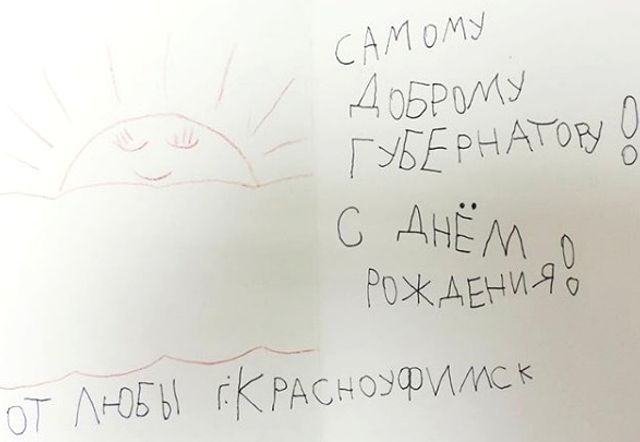 САМОМУ
ДОБРОМУ
ГУБЕРНАТОРУ!
С ДНЁМ
РОЖДЕНИЯ!
ОТ ЛЮБЫ г.КРАСНОУФИМСК